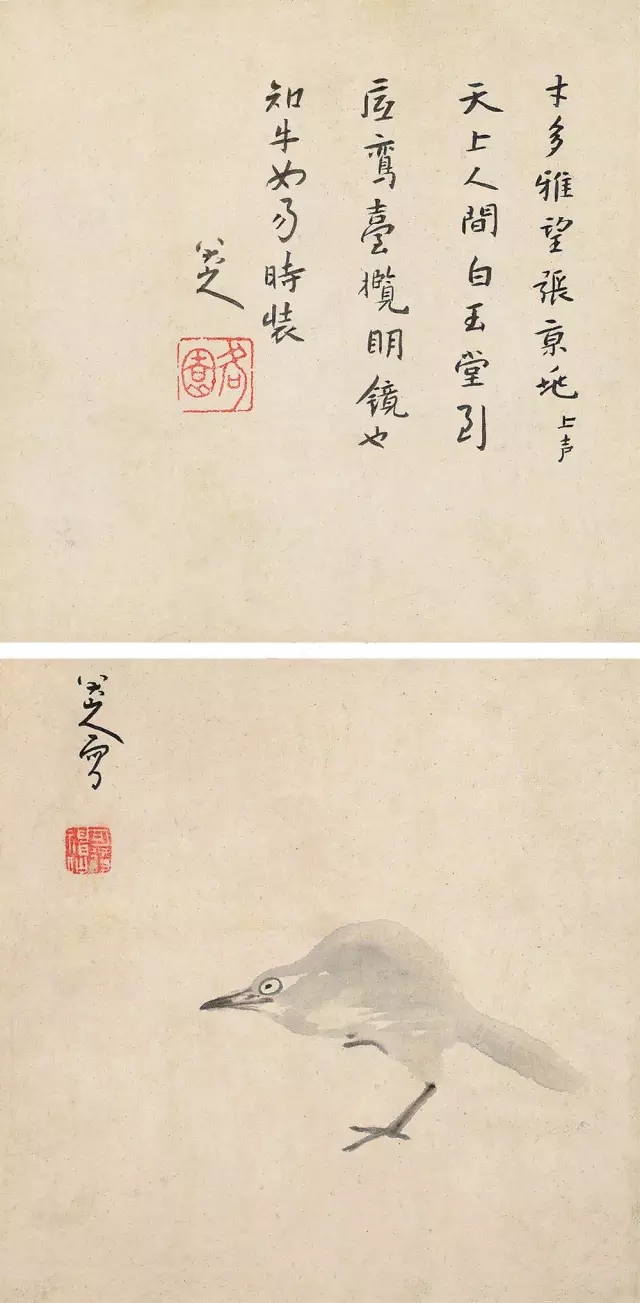 才多雅望張京垗 上声
天上人間白玉堂到
底鸞臺攬明鏡也
知牛女易時裝
八大山人
八大山人寫